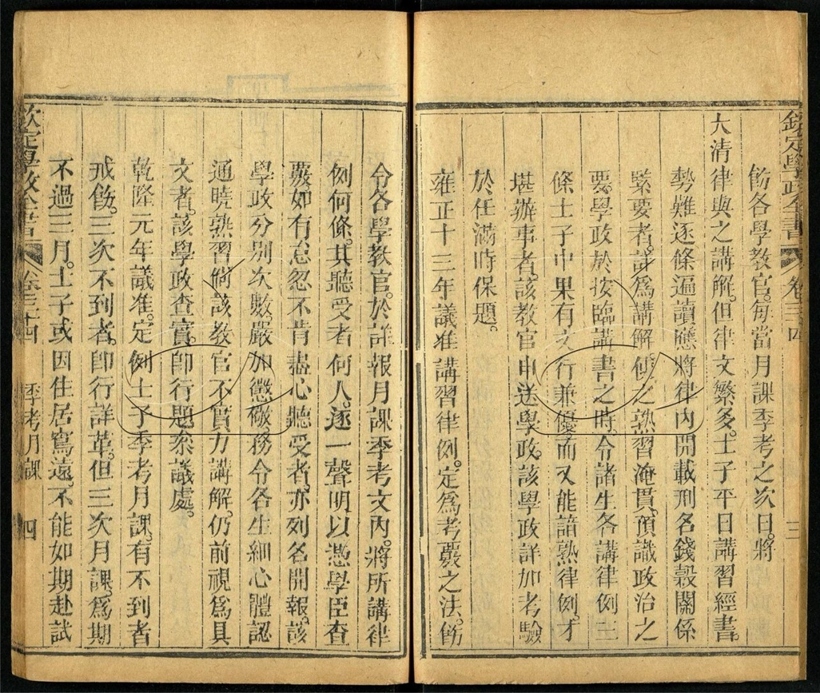 欽定學政全書 卷三十四 三
飭各學教官。每當月課季考之次日。將
大清律與之講解。但律文繁多。士子平日講習經書。
勢難逐條遍讀。應將律內開載刑名錢穀關係
緊要者。詳爲講解。使之熟習淹貫。預識政治之
要。學政於按臨講書之時。令諸生各講律例三
條。士子中果有文行兼優。而又能諳熟律例。才
堪辦事者。該教官申送學政。該學政詳加考驗。
於任滿時保題。
雍正十三年議准。講習律例。定爲考覈之法。飭
令各學教官。於詳報月課季考文內。將所講律
例何條。其聽受者何人。逐一聲明。以憑學臣查
覈。如有怠忽不肯盡心聽受者。亦列名開報。該
學政分別次數。嚴加懲儆。務令各生細心體認。
通曉熟習。倘該教官不實力講解。仍前視爲具
文者。該學政查實。卽行題叅議處。
乾隆元年議准。定例士子季考月課。有不到者
戒飭。三次不到者。卽行詳革。但三次月課。爲期
不過三月。士子或因住居寫遠。不能如期赴試
欽定學政全書 卷三十四 季考月課 四